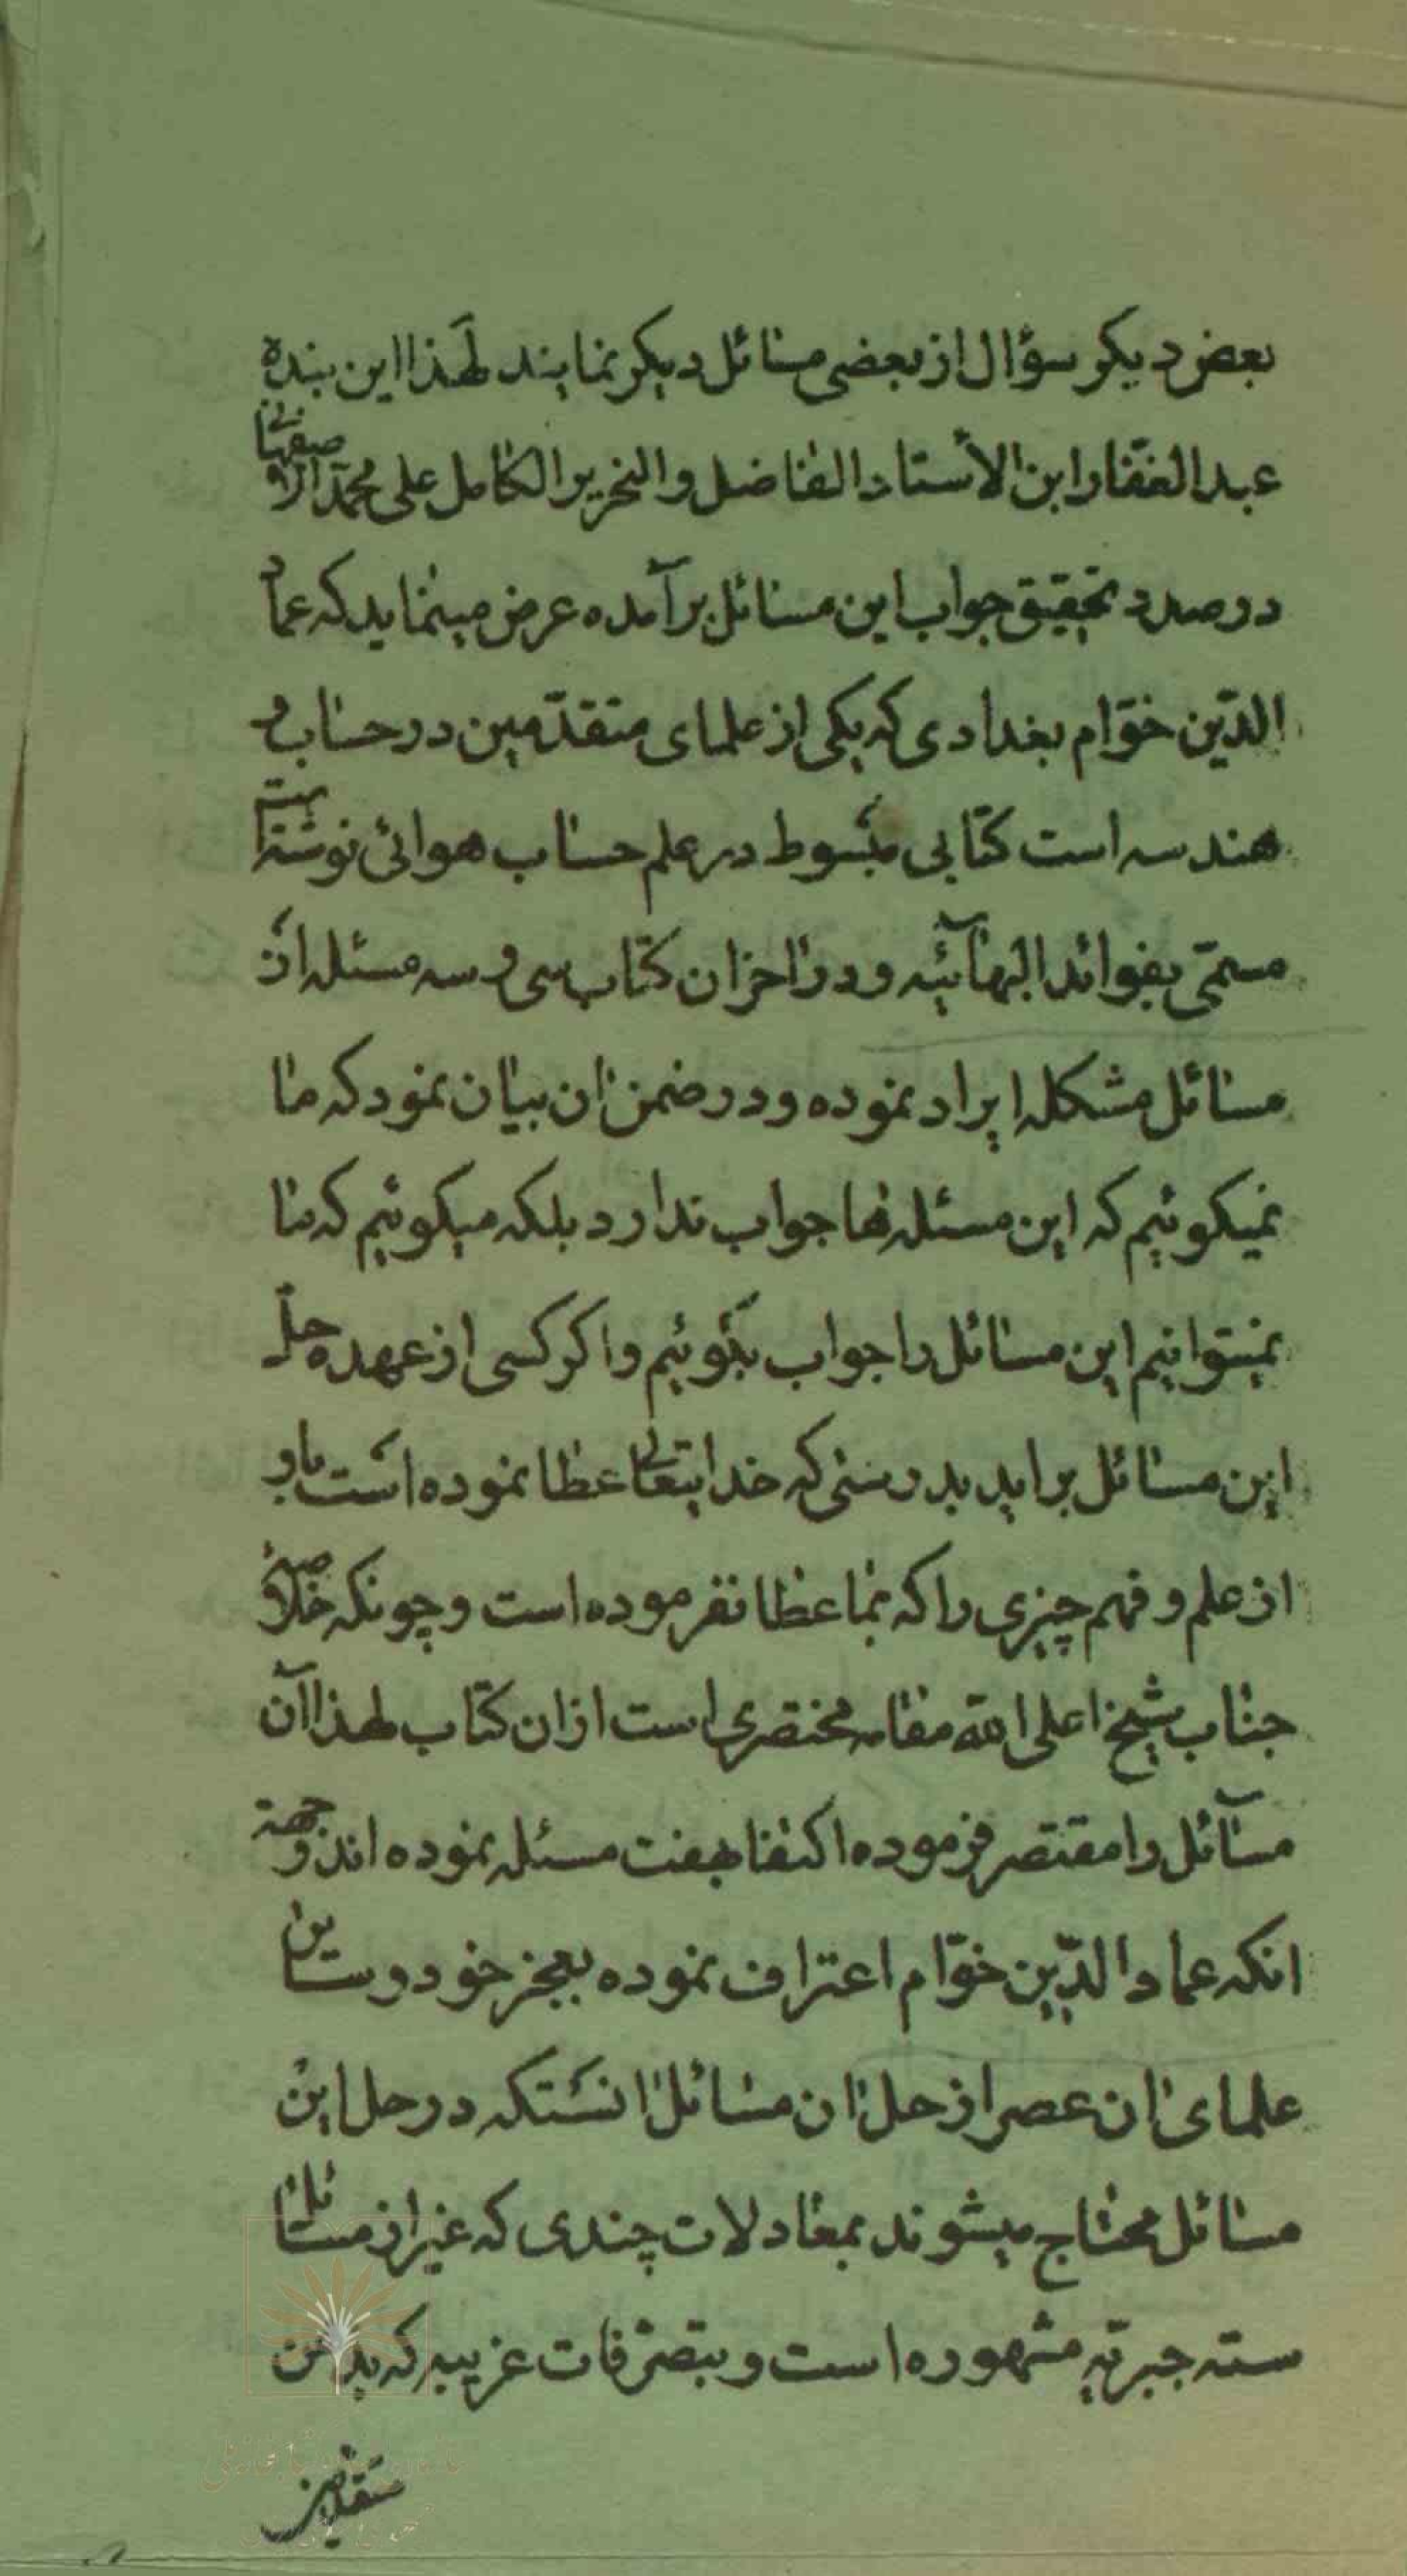 بعض دیکر سؤال از بعضی مسائل دیکر نمایند لهذا این بنده
عبدالغفار ابن الأستاد الفاضل والنحریر الکامل علی محمد الاصفهانی
در صدد تحقیق جواب این مسائل برآمده عرض مینماید که عماد
الدّین خوّام بغدادی که یکی از علمای متقدّمین در حساب و
هندسه است کتابی مبسوط در علم حساب هوائی نوشته است
مسمّی بفوائد البهآئیّه و در اخر ان کتاب سی و سه مسئله از
مسائل مشکله ایراد نموده و در ضمن ان بیان نمود که ما
نمیکوئیم که این مسئله‌ها جواب ندارد بلکه میکوئیم که ما
نمیتوانیم این مسائل را جواب بگوئیم و اکر کسی از عهده حلّ
این مسائل براید بدرستی که خدایتعالی عطا نموده است باو
از علم و فهم چیزی را که بما عطا نفرموده است و چونکه خلاصه
جناب شیخ اعلی الله مقامه مختصری است از ان کتاب لهذا آن
مسآئل را مقتصر فرموده اکتفا بهفت مسئله نموده اند و جهة
انکه عماد الدّین خوّام اعتراف نموده بعجز خود و سایرین
علمای ان عصر از حل ان مسائل انستکه در حل این
مسائل محتاج میشوند بمعادلات چندی که غیر از مسائل
سته جبریّه مشهوره است و بتصرّفات غریبه که بر من